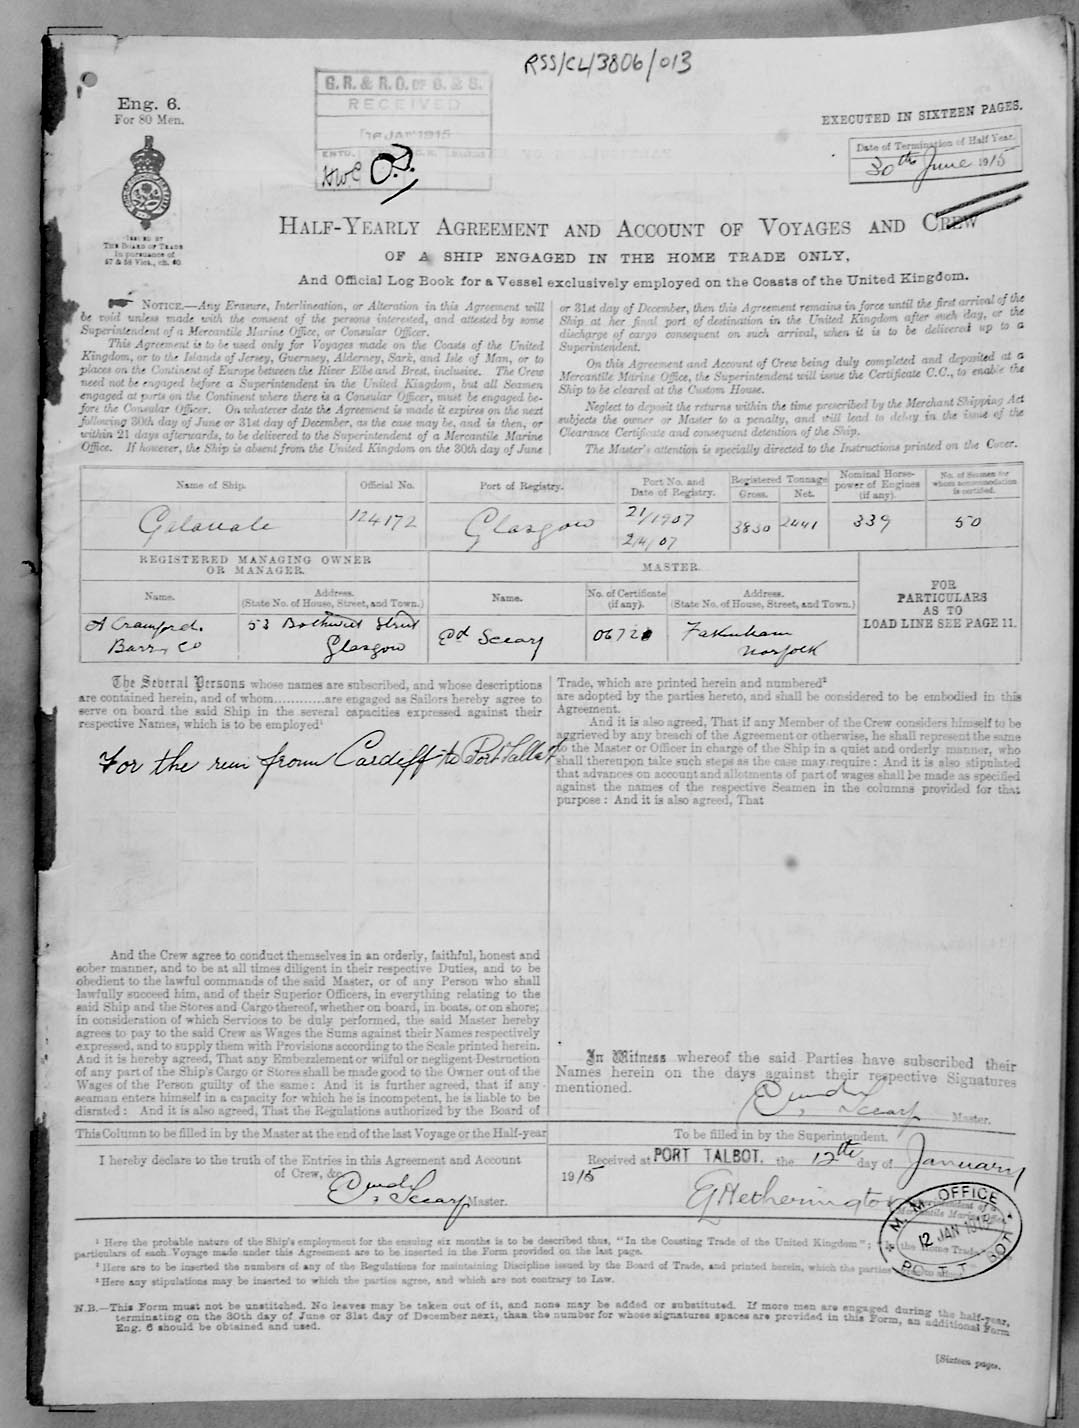 RSS/CL/3806/013
Eng. 6.
For 80 Men.
G. R. & R. O. OF S. & S.
RECEIVED
JAN 1915
EXECUTED IN SIXTEEN PAGES.
Date of Termination of Half Year.
30th June 1915
ISSUED BY
THE BOARD OF TRADE
In pursuance of
57 & 58 Vict., ch. 60.
HALF-YEARLY AGREEMENT AND ACCOUNT OF VOYAGES AND CREW
OF A SHIP ENGAGED IN THE HOME TRADE ONLY,
And Official Log Book for a Vessel exclusively employed on the Coasts of the United Kingdom.
NOTICE.—Any Erasure, Interlineation, or Alteration in this Agreement will
be void unless made with the consent of the persons interested, and attested by some
Superintendent of a Mercantile Marine Office, or Consular Officer.
This Agreement is to be used only for Voyages made on the Coasts of the United
Kingdom, or to the Islands of Jersey, Guernsey, Alderney, Sark, and Isle of Man, or to
places on the Continent of Europe between the River Elbe and Brest, inclusive. The Crew
need not be engaged before a Superintendent in the United Kingdom, but all Seamen
engaged at ports on the Continent where there is a Consular Officer, must be engaged be-
fore the Consular Officer. On whatever date the Agreement is made it expires on the next
following 30th day of June or 31st day of December, as the case may be, and is then, or
within 21 days afterwards, to be delivered to the Superintendent of a Mercantile Marine
Office. If however, the Ship is absent from the United Kingdom on the 30th day of June
or 31st day of December, then this Agreement remains in force until the first arrival of the
Ship at her final port of destination in the United Kingdom after such day, or the
discharge of cargo consequent on such arrival, when it is to be delivered up to a
Superintendent.
On this Agreement and Account of Crew being duly completed and deposited at a
Mercantile Marine Office, the Superintendent will issue the Certificate C.C., to enable the
Ship to be cleared at the Custom House.
Neglect to deposit the returns within the time prescribed by the Merchant Shipping Act
subjects the owner or Master to a penalty, and will lead to delay in the issue of the
Clearance Certificate and consequent detention of the Ship.
The Master's attention is specially directed to the Instructions printed on the Cover.
Name of Ship. Official No. Port of Registry. Port No. and Date of Registry. Registered Tonnage Gross. Net. Nominal Horse-power of Engines (if any). No. of Seamen for whom accommodation is certified.
124172 Glasgow 21/1907 2/4/07 3830 2441 339 50
REGISTERED MANAGING OWNER
OR MANAGER.
MASTER.
Name. Address. (State No. of House, Street, and Town.) Name. No. of Certificate (if any). Address. (State No. of House, Street, and Town.)
FOR
PARTICULARS
AS TO
LOAD LINE SEE PAGE 11.
53 Bothwell Street
Barr & Co Glasgow Ed Scearf Fakenham
Norfolk
The Several Persons whose names are subscribed, and whose descriptions
are contained herein, and of whom............are engaged as Sailors hereby agree to
serve on board the said Ship in the several capacities expressed against their
respective Names, which is to be employed¹
For the run from Cardiff to Port Talbot
Trade, which are printed herein and numbered²
are adopted by the parties hereto, and shall be considered to be embodied in this
Agreement.
And it is also agreed, That if any Member of the Crew considers himself to be
aggrieved by any breach of the Agreement or otherwise, he shall represent the same
to the Master or Officer in charge of the Ship in a quiet and orderly manner, who
shall thereupon take such steps as the case may require: And it is also stipulated
that advances on account and allotments of part of wages shall be made as specified
against the names of the respective Seamen in the columns provided for that
purpose: And it is also agreed, That
And the Crew agree to conduct themselves in an orderly, faithful, honest and
sober manner, and to be at all times diligent in their respective Duties, and to be
obedient to the lawful commands of the said Master, or of any Person who shall
lawfully succeed him, and of their Superior Officers, in everything relating to the
said Ship and the Stores and Cargo thereof, whether on board, in boats, or on shore;
in consideration of which Services to be duly performed, the said Master hereby
agrees to pay to the said Crew as Wages the Sums against their Names respectively
expressed, and to supply them with Provisions according to the Scale printed herein.
And it is hereby agreed, That any Embezzlement or wilful or negligent Destruction
of any part of the Ship's Cargo or Stores shall be made good to the Owner out of the
Wages of the Person guilty of the same: And it is further agreed, that if any
seaman enters himself in a capacity for which he is incompetent, he is liable to be
disrated: And it is also agreed, That the Regulations authorized by the Board of
In Witness whereof the said Parties have subscribed their
Names herein on the days against their respective Signatures
mentioned.
Scearf Master.
This Column to be filled in by the Master at the end of the last Voyage or the Half-year
I hereby declare to the truth of the Entries in this Agreement and Account
of Crew, &c.
Scearf Master.
To be filled in by the Superintendent.
Received at PORT TALBOT. the 12th day of January
1915
G Hetherington
Superintendent of a
Mercantile Marine Office.
M. M. OFFICE
12 JAN 1915
PORT TALBOT
¹ Here the probable nature of the Ship's employment for the ensuing six months is to be described thus, "In the Coasting Trade of the United Kingdom"; "In the Home Trade
particulars of each Voyage made under this Agreement are to be inserted in the Form provided on the last page.
² Here are to be inserted the numbers of any of the Regulations for maintaining Discipline issued by the Board of Trade, and printed herein, which the parties
³ Here any stipulations may be inserted to which the parties agree, and which are not contrary to Law.
N.B.—This Form must not be unstitched. No leaves may be taken out of it, and none may be added or substituted. If more men are engaged during the half-year,
terminating on the 30th day of June or 31st day of December next, than the number for whose signatures spaces are provided in this Form, an additional Form
Eng. 6 should be obtained and used.
[Sixteen pages.